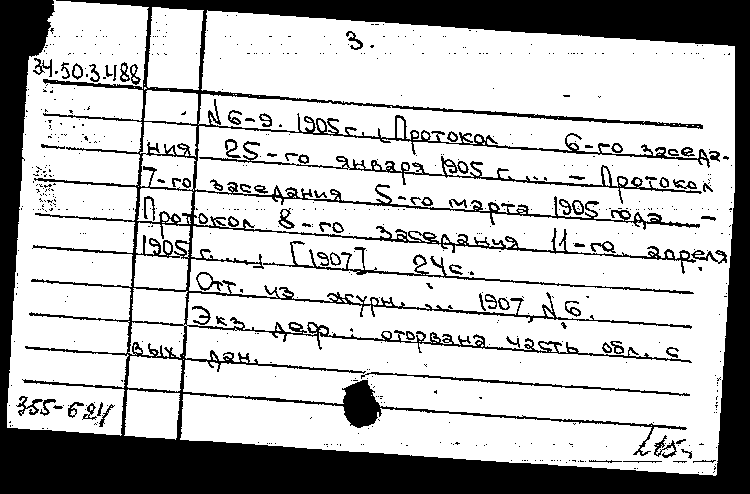 3.
34.50.3.488
N 6-9. 1905 г. [Протокол 6-го заседа-
ния 25-го января 1905 г. ... - Протокол
7-го заседания 5-го марта 1905 года ... -
Протокол 8-го заседания 11-го апреля
1905 г. ...] [1907]. 24 с.
Отт. из журн. ... 1907, N 6.
Экз. деф.: оторвана часть обл. с
вых. дан.
355-624